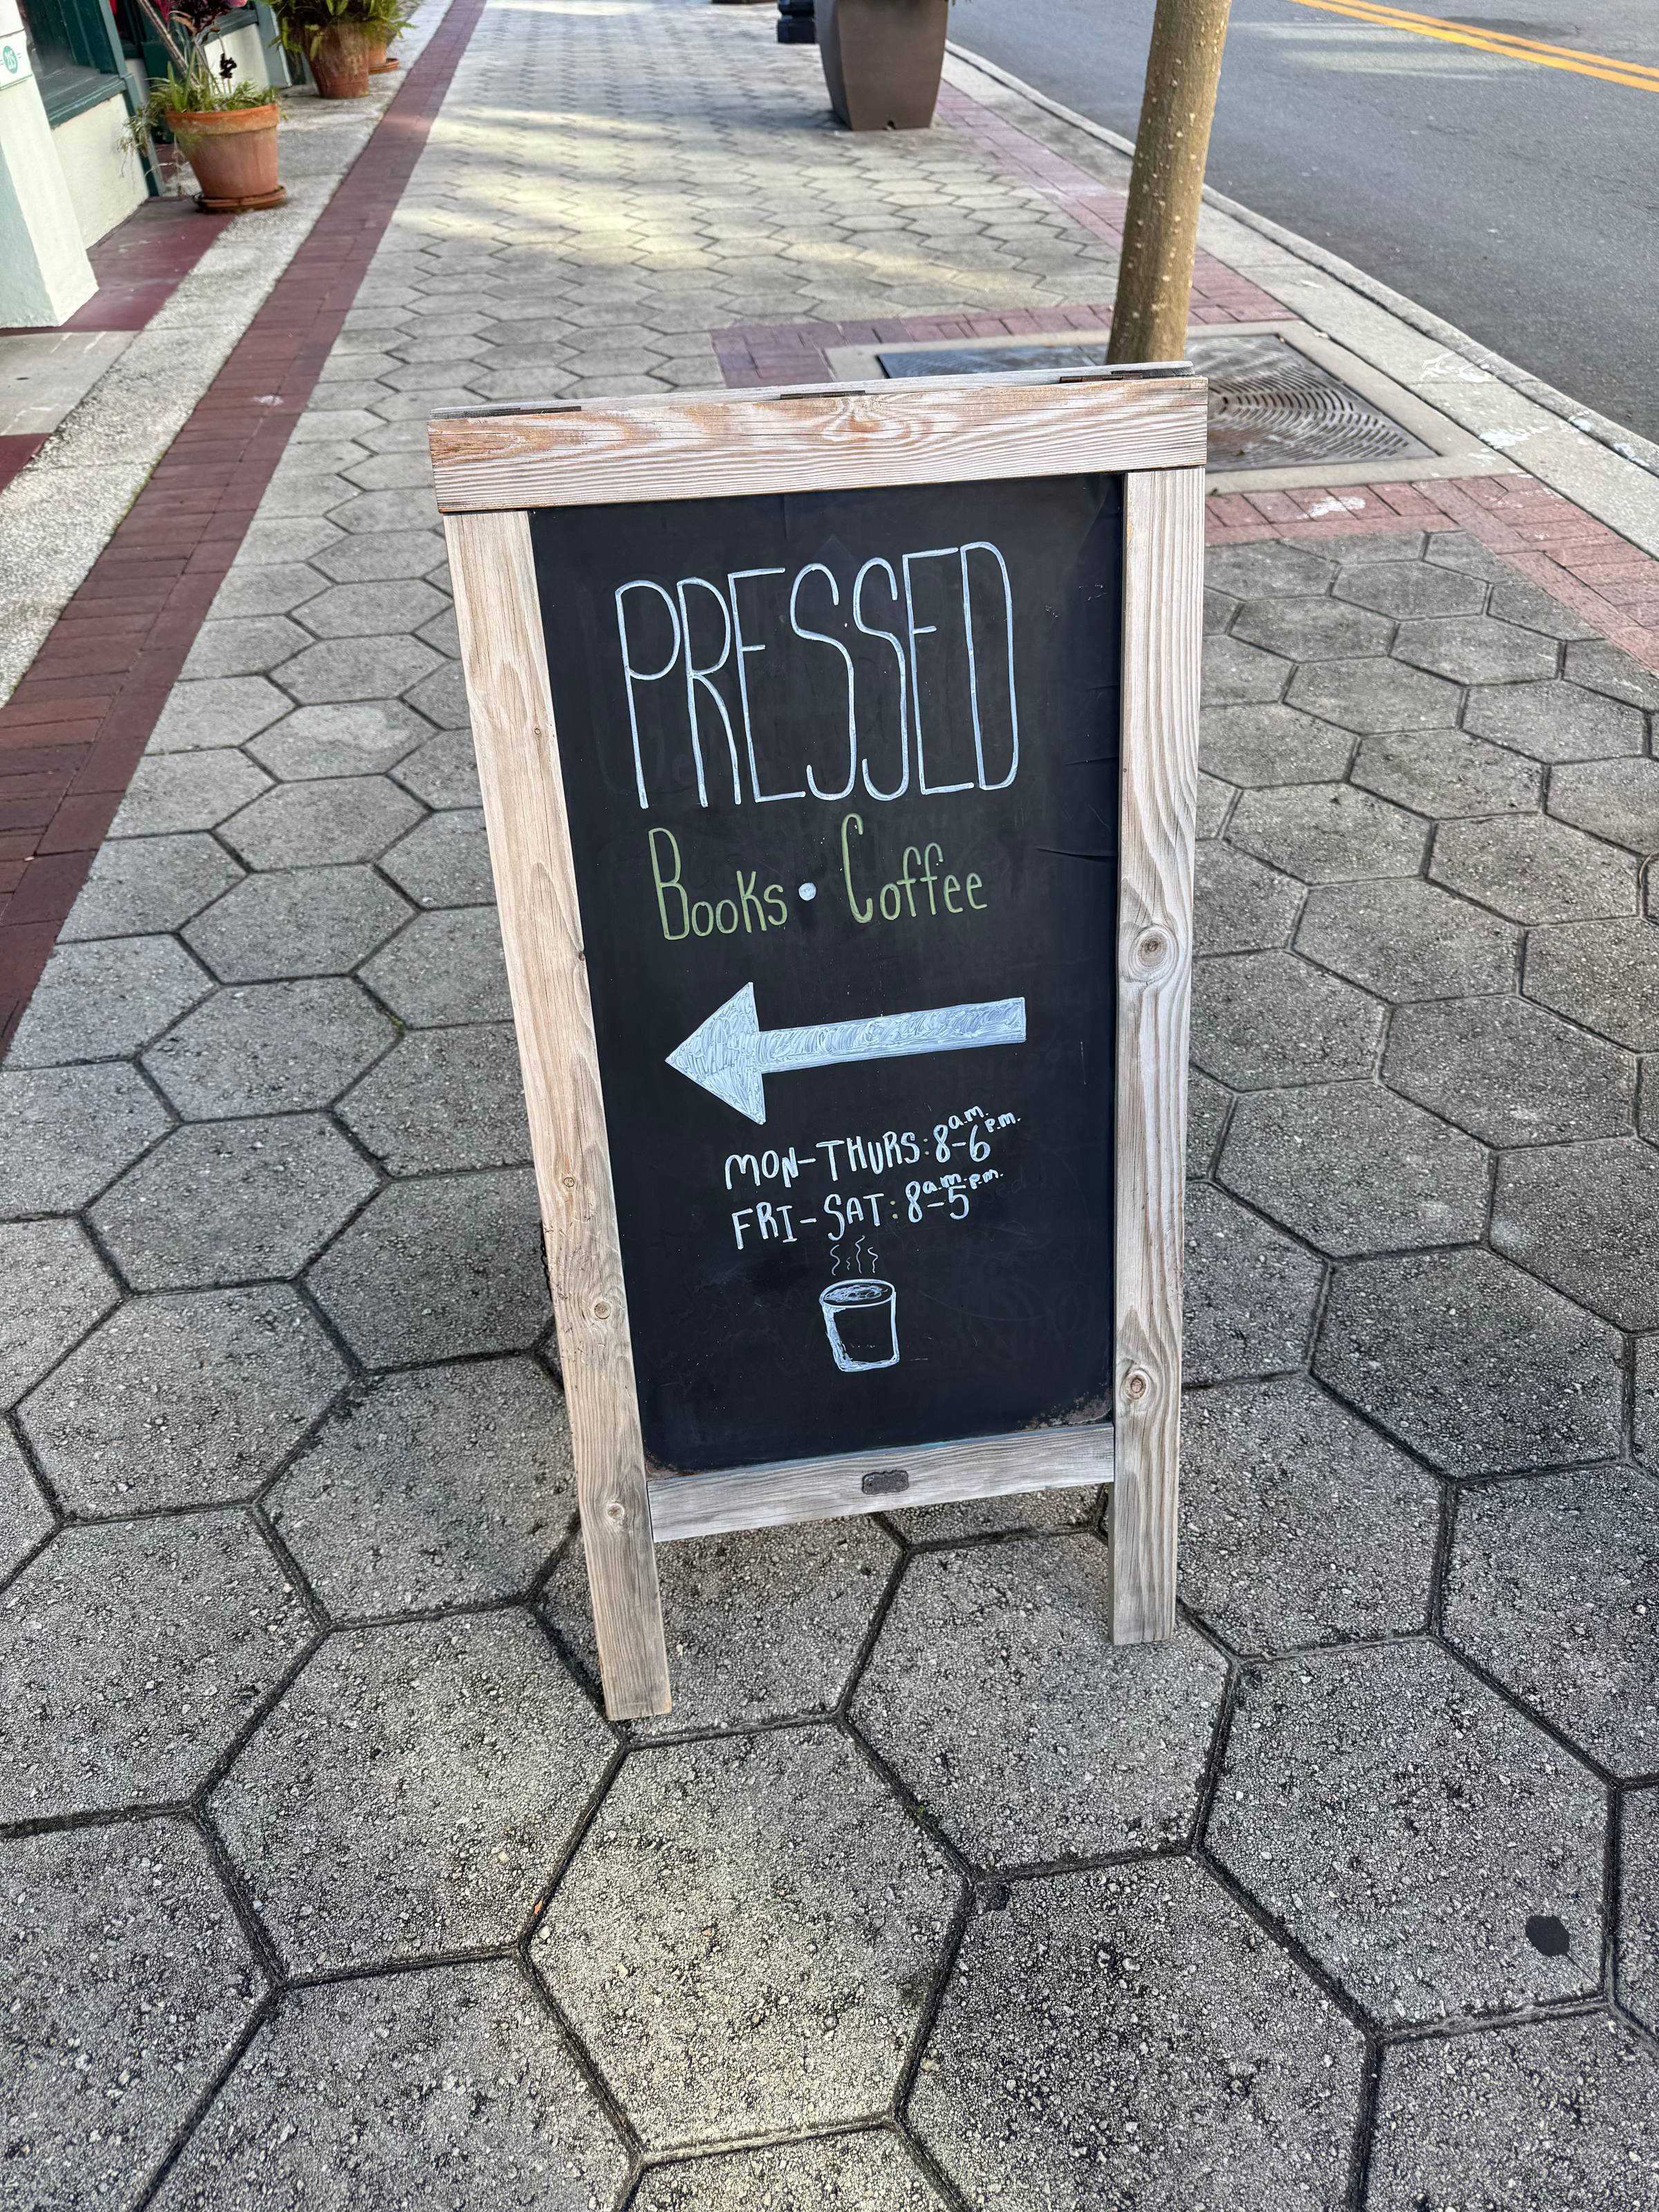 PRESSED
Books • Coffee
MON-THURS: 8a.m.-6p.m.
FRI-SAT: 8a.m.-5p.m.